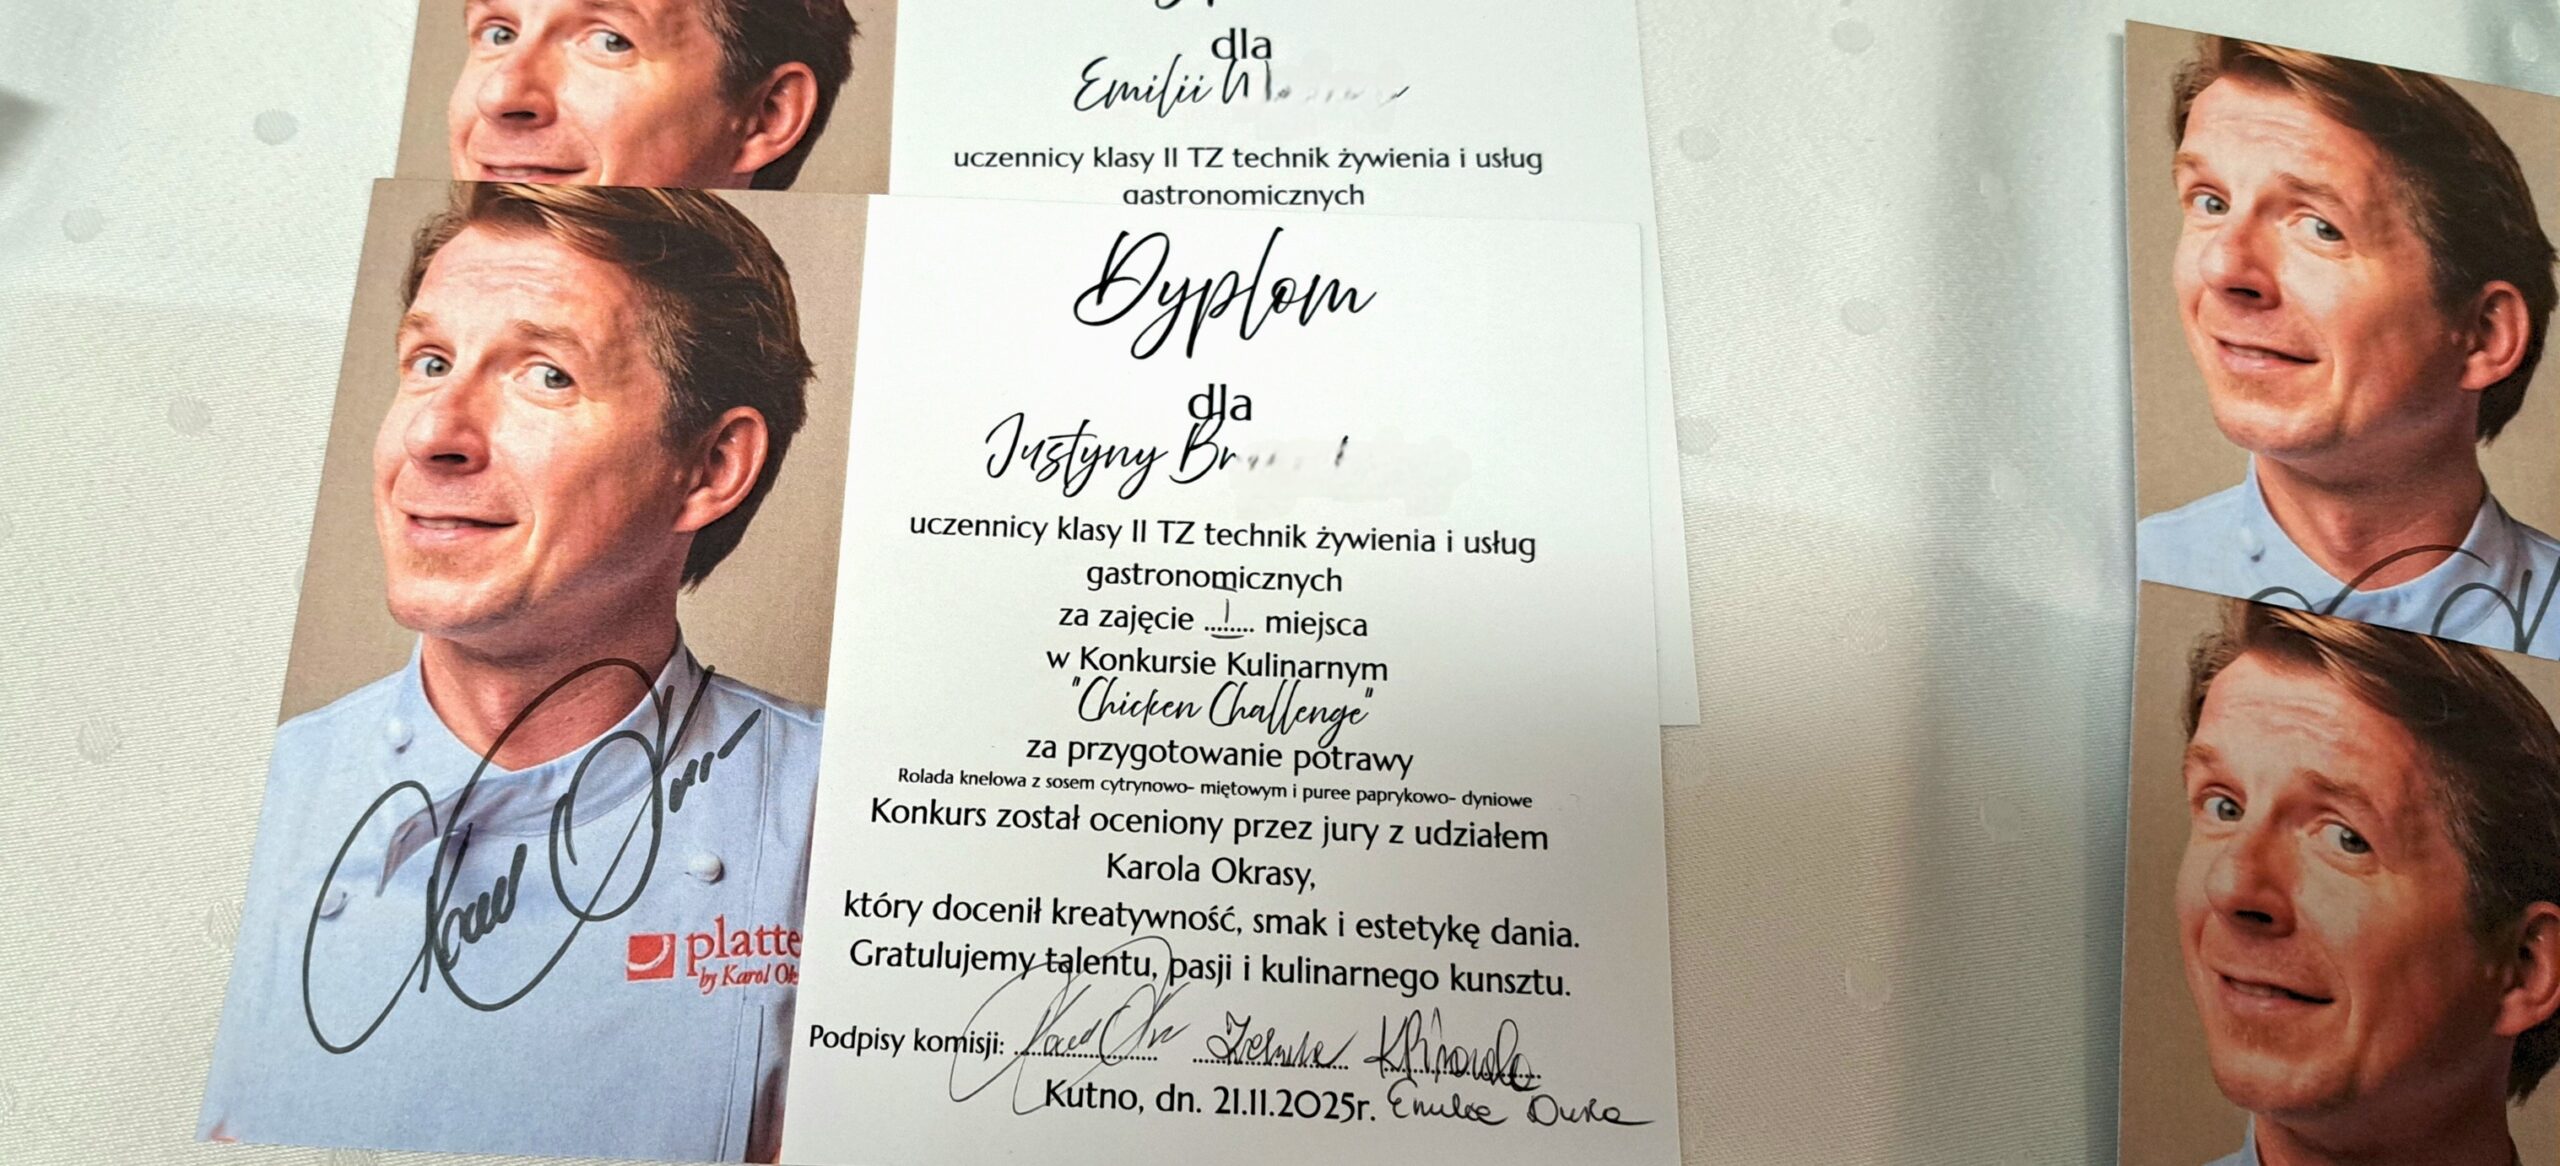 dla
Emilii
uczennicy klasy II TZ technik żywienia i usług
gastronomicznych
Dyplom
dla
Justyny Br
uczennicy klasy II TZ technik żywienia i usług
gastronomicznych
za zajęcie ...I... miejsca
w Konkursie Kulinarnym
"Chicken Challenge"
za przygotowanie potrawy
Rolada knelowa z sosem cytrynowo- miętowym i puree paprykowo- dyniowe
Konkurs został oceniony przez jury z udziałem
Karola Okrasy,
który docenił kreatywność, smak i estetykę dania.
Gratulujemy talentu, pasji i kulinarnego kunsztu.
Podpisy komisji:
Kutno, dn. 21.11.2025r.
platte
by Karol Ok